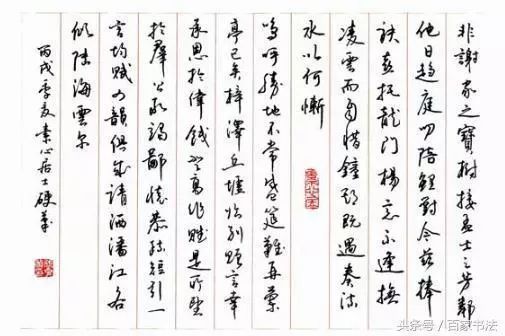 非謝家之寶樹接孟士之芳鄰
他日趨庭叨陪鯉對今茲捧
袂喜托龍門楊意不逢撫
凌雲而自惜鍾期既遇奏流
水以何慚
嗚呼勝地不常盛筵難再蘭
亭已矣梓澤丘墟臨別贈言幸
承恩於偉餞登高作賦是所望
於羣公敢竭鄙懷恭疏短引一
言均賦四韻俱成請洒潘江各
傾陸海雲尔
丙戌季夏素心居士硬筆
头条号 / 百家书法